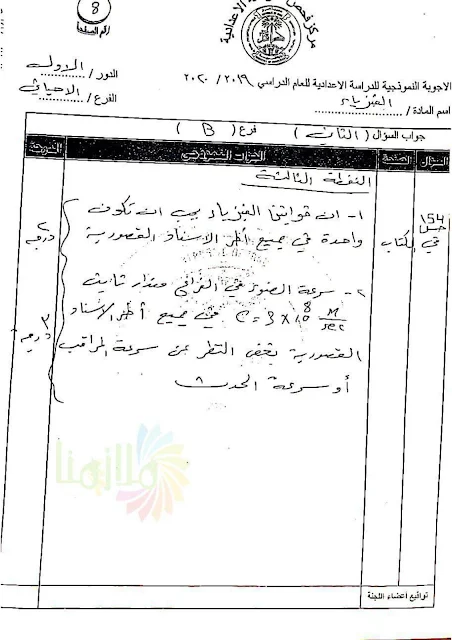 8
رقم الصفحة
مركز فحص الدراسة الاعدادية
الاجوبة النموذجية للدراسة الاعدادية للعام الدراسي ٢٠١٩ / ٢٠٢٠
الدور / الاول
اسم المادة / الفيزياء
الفرع / الاحيائي
جواب السؤال ( الثاني ) فرع ( B )
السؤال الصفحة الجواب النموذجي الدرجة
النقطة الثالثة
١- ان قوانين الفيزياء يجب ان تكون
واحدة في جميع أطر الاسناد القصورية
١٥٤
في الكتاب
٢ درجة
٢- سرعة الضوء في الفراغ مقدار ثابت
C = 3 x 10^8 M/sec في جميع أطر الاسناد
القصورية بغض النظر عن سرعة المراقب
أو سرعة الحدث
٣ درجة
ملازمنا
تواقيع اعضاء اللجنة